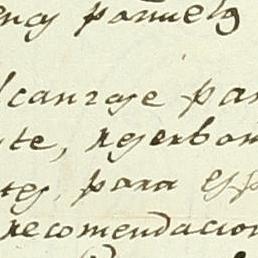 ency pañuelo
lcanzase par
te, reserbon
tes, para esp
recomendacion